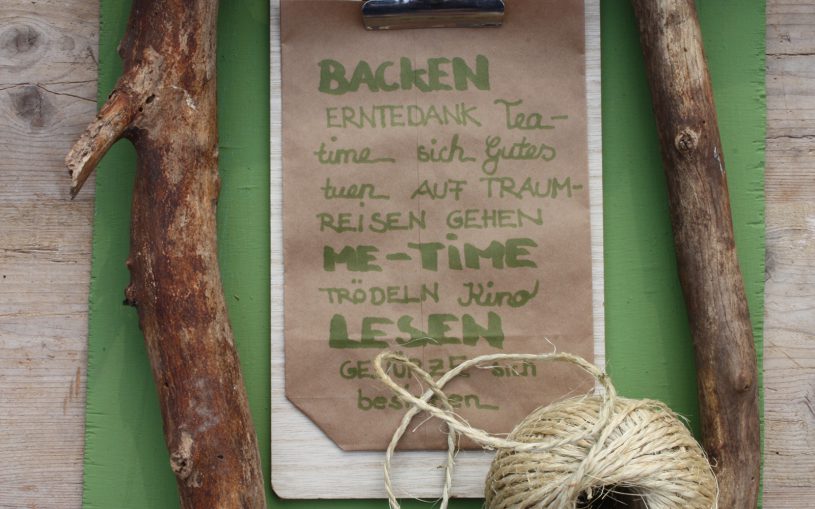 BACKEN
ERNTEDANK Tea-
time sich Gutes
tuen AUF TRAUM-
REISEN GEHEN
ME-TIME
TRÖDELN Kino
LESEN
GEWÜRZE sich